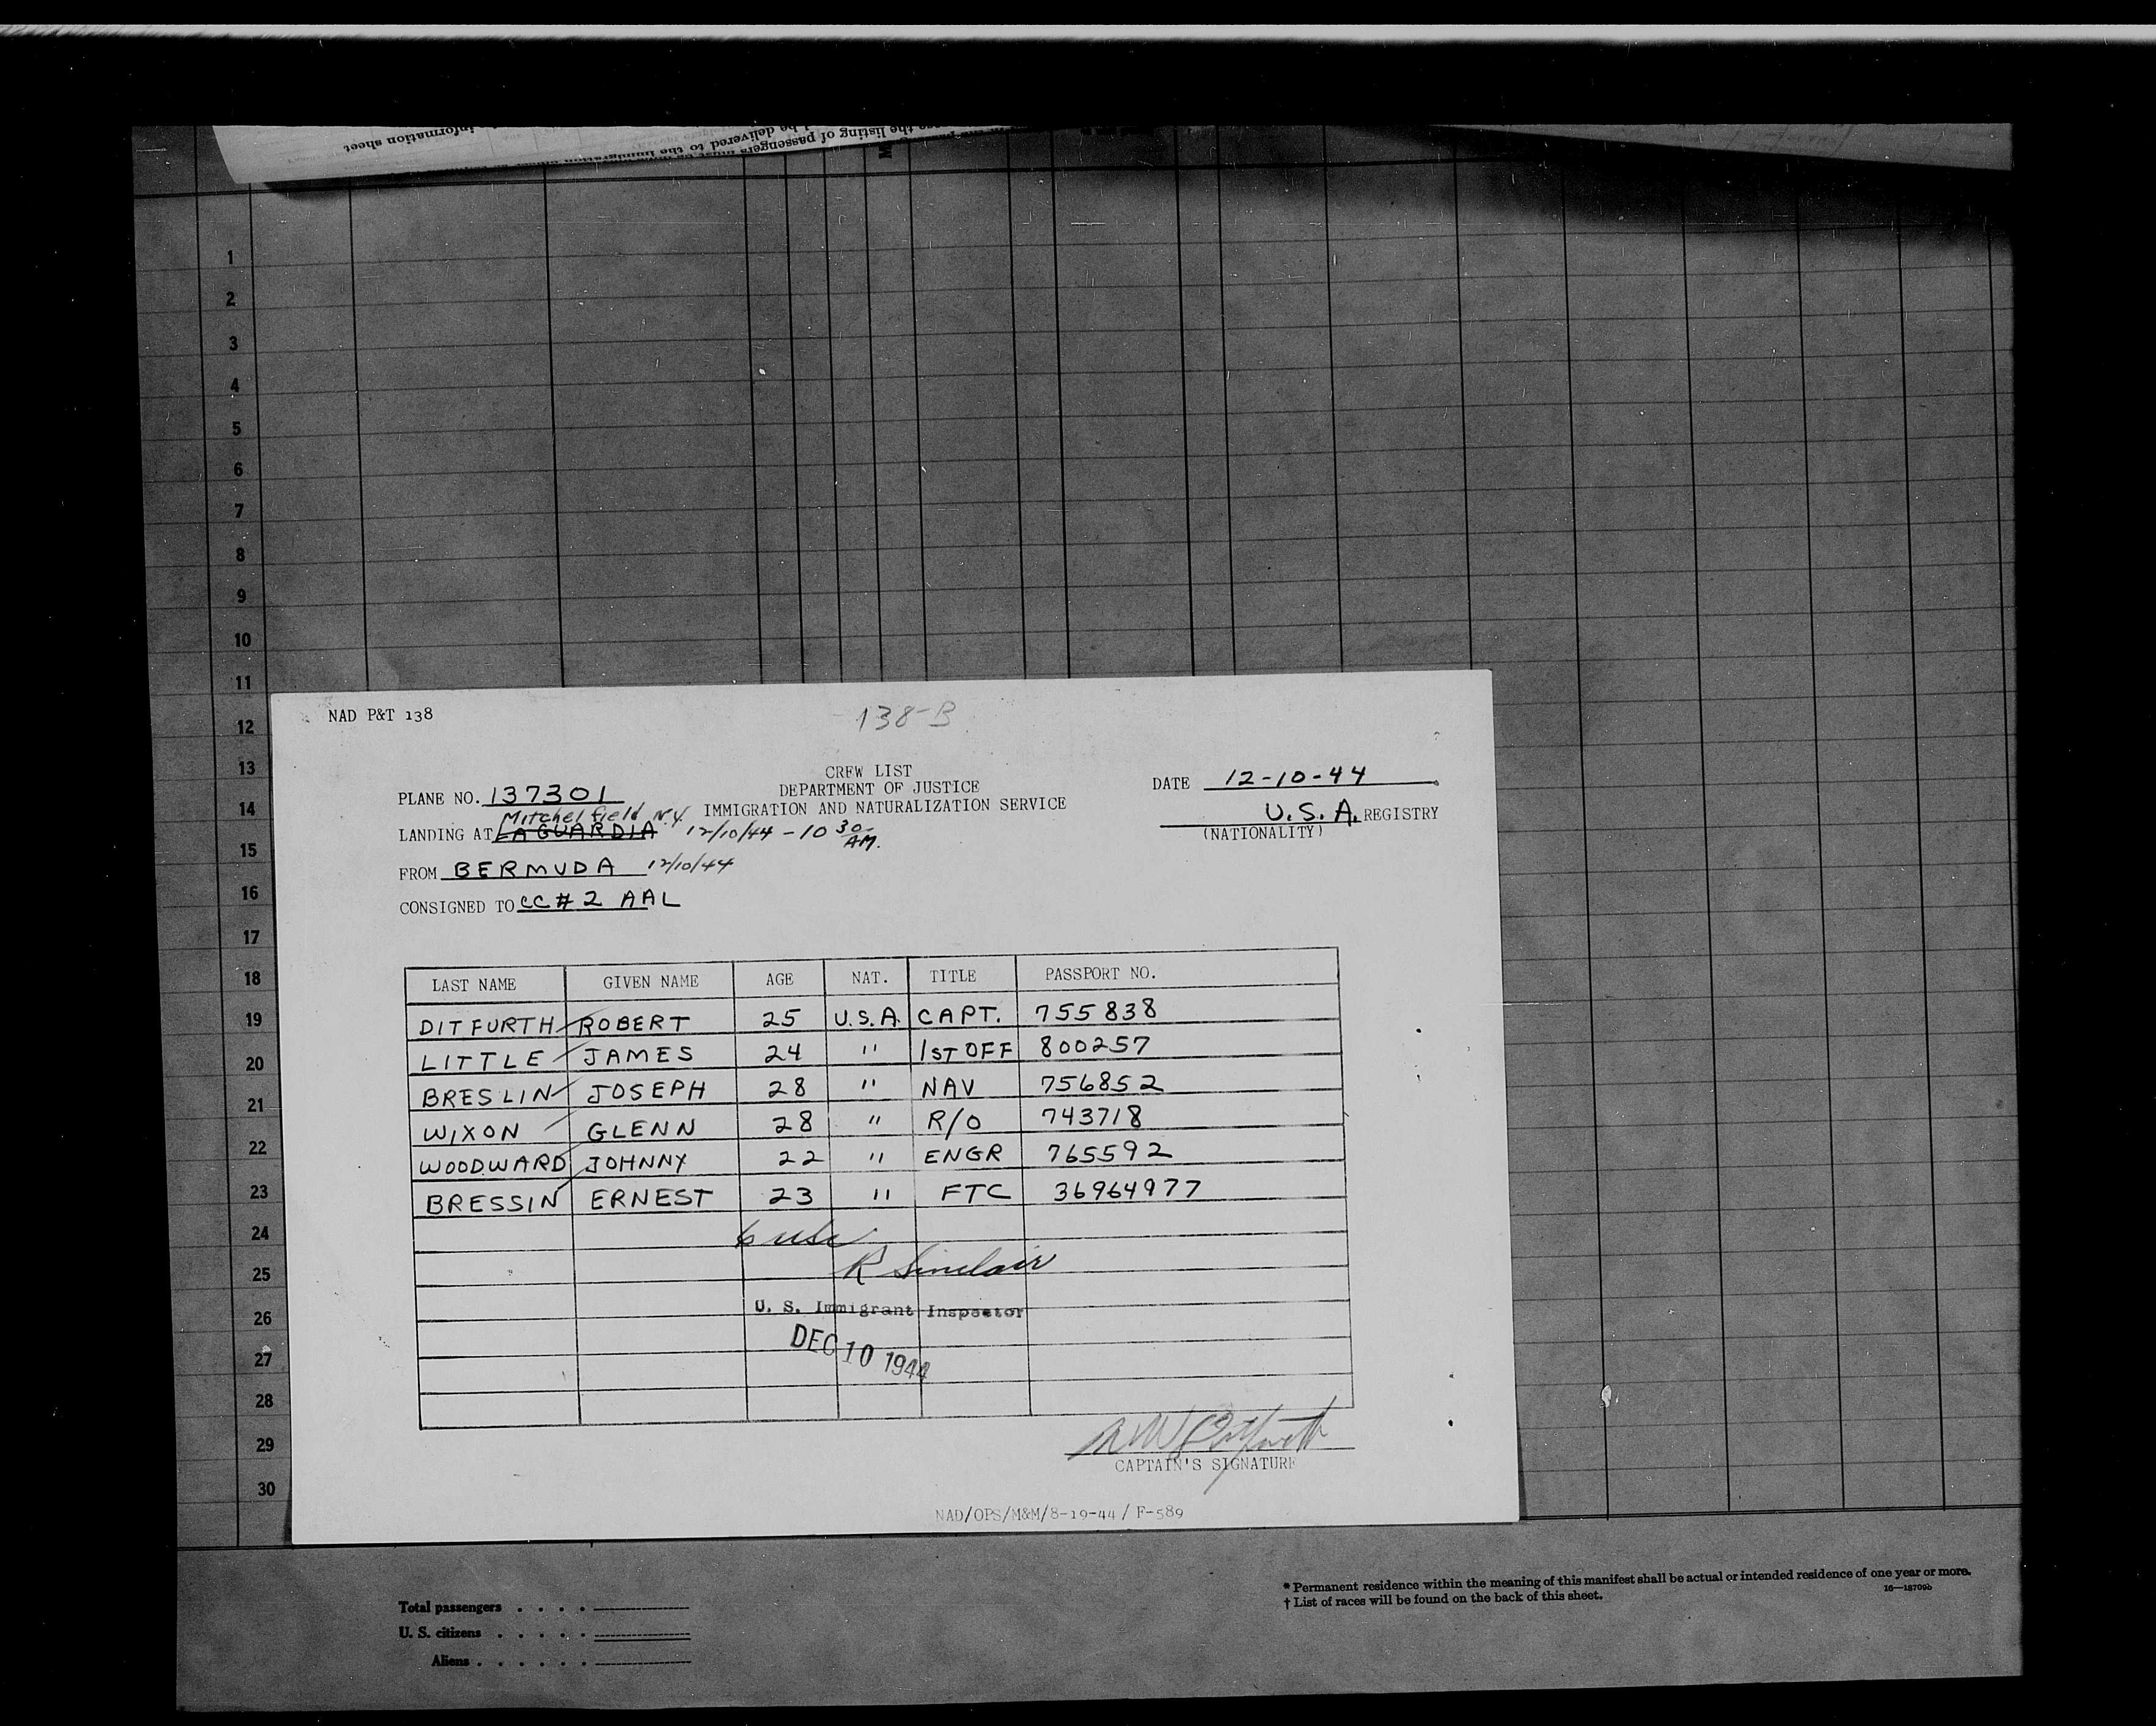 information sheet
the listing of passengers
be delivered to the immigration
1
2
3
4
5
6
7
8
9
10
11
12
13
14
15
16
17
18
19
20
21
22
23
24
25
26
27
28
29
30
NAD P&T 138
138-B
CREW LIST
DEPARTMENT OF JUSTICE
IMMIGRATION AND NATURALIZATION SERVICE
DATE 12-10-44
U.S.A. REGISTRY
(NATIONALITY)
PLANE NO. 137301
Mitchel field N.Y.
LANDING AT LAGUARDIA 12/10/44 - 10 30 AM.
FROM BERMUDA 12/10/44
CONSIGNED TO CC # 2 AAL
LAST NAME GIVEN NAME AGE NAT. TITLE PASSPORT NO.
DITFURTH ROBERT 25 U.S.A. CAPT. 755838
LITTLE JAMES 24 " 1ST OFF 800257
BRESLIN JOSEPH 28 " NAV 756852
WIXON GLENN 28 " R/O 743718
WOODWARD JOHNNY 22 " ENGR 765592
BRESSIN ERNEST 23 " FTC 36964977
6 usc
R Sinclair
U. S. Immigrant Inspector
DEC 10 1944
CAPTAIN'S SIGNATURE
NAD/OPS/M&M/8-19-44 / F-589
Total passengers . . . .
U. S. citizens . . . . .
Aliens . . . . . .
* Permanent residence within the meaning of this manifest shall be actual or intended residence of one year or more.
† List of races will be found on the back of this sheet.
16—18709b